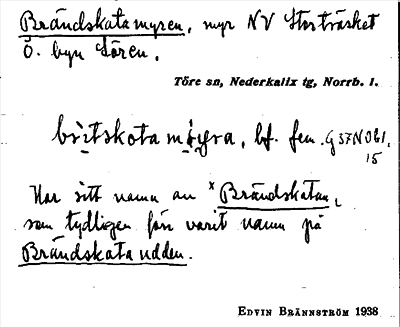 Brändskatamyren, myr NV Storträsket
Ö. byn Sören.
Töre sn, Nederkalix tg, Norrb. l.
bf. fem.
15
Har sitt namn av ˣBrändskatan,
som tydligen förr varit namn på
Brändskataudden.
EDVIN BRÄNNSTRÖM 1938